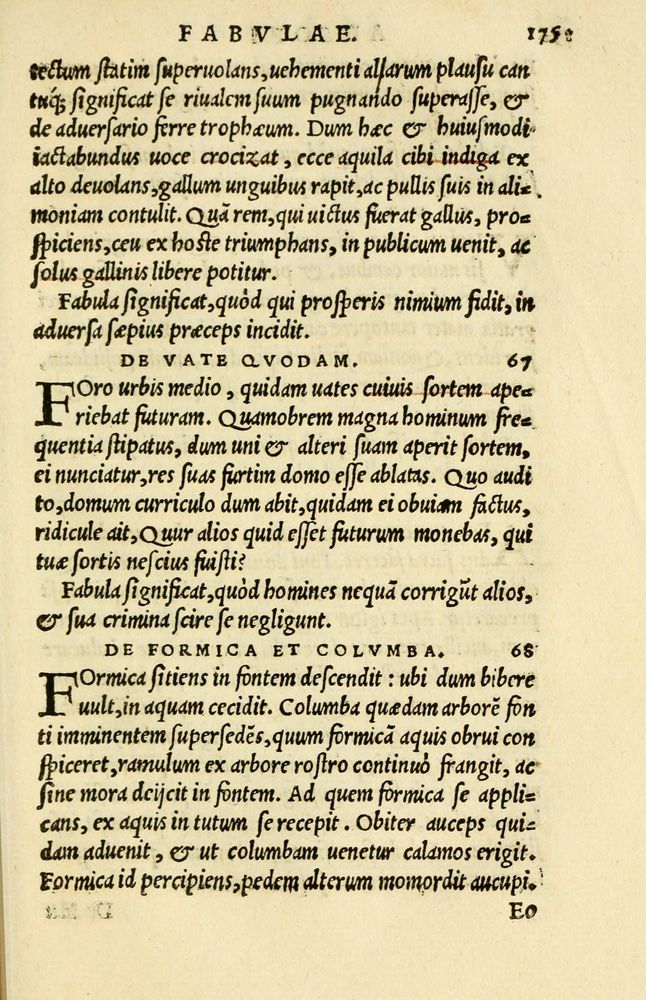 FABVLAE. 175
tectum statim superuolans, uehementi allarum plausu can
tuq́; significat se riualem suum pugnando superasse, &
de aduersario ferre trophæum. Dum hæc & huiusmodi
iactabundus uoce crocizat, ecce aquila cibi indiga ex
alto deuolans, gallum unguibus rapit, ac pullis suis in ali=
moniam contulit. Quã rem, qui uictus fuerat gallus, pro=
spiciens, ceu ex hoste triumphans, in publicum uenit, ac
solus gallinis libere potitur.
Fabula significat, quòd qui prosperis nimium fidit, in
aduersa sæpius præceps incidit.
DE VATE QVODAM. 67
FOro urbis medio, quidam uates cuiuis sortem ape=
riebat futuram. Quamobrem magna hominum fre=
quentia stipatus, dum uni & alteri suam aperit sortem,
ei nunciatur, res suas furtim domo esse ablatas. Quo audi
to, domum curriculo dum abit, quidam ei obuiam factus,
ridicule ait, Quur alios quid esset futurum monebas, qui
tuæ sortis nescius fuisti?
Fabula significat, quòd homines nequã corrigũt alios,
& sua crimina scire se negligunt.
DE FORMICA ET COLVMBA. 68
FOrmica sitiens in fontem descendit: ubi dum bibere
uult, in aquam cecidit. Columba quædam arborẽ fon
ti imminentem supersedẽs, quum formicã aquis obrui con
spiceret, ramulum ex arbore rostro continuò frangit, ac
sine mora deijcit in fontem. Ad quem formica se appli=
cans, ex aquis in tutum se recepit. Obiter auceps qui=
dam aduenit, & ut columbam uenetur calamos erigit.
Formica id percipiens, pedem alterum momordit aucupi.
EO